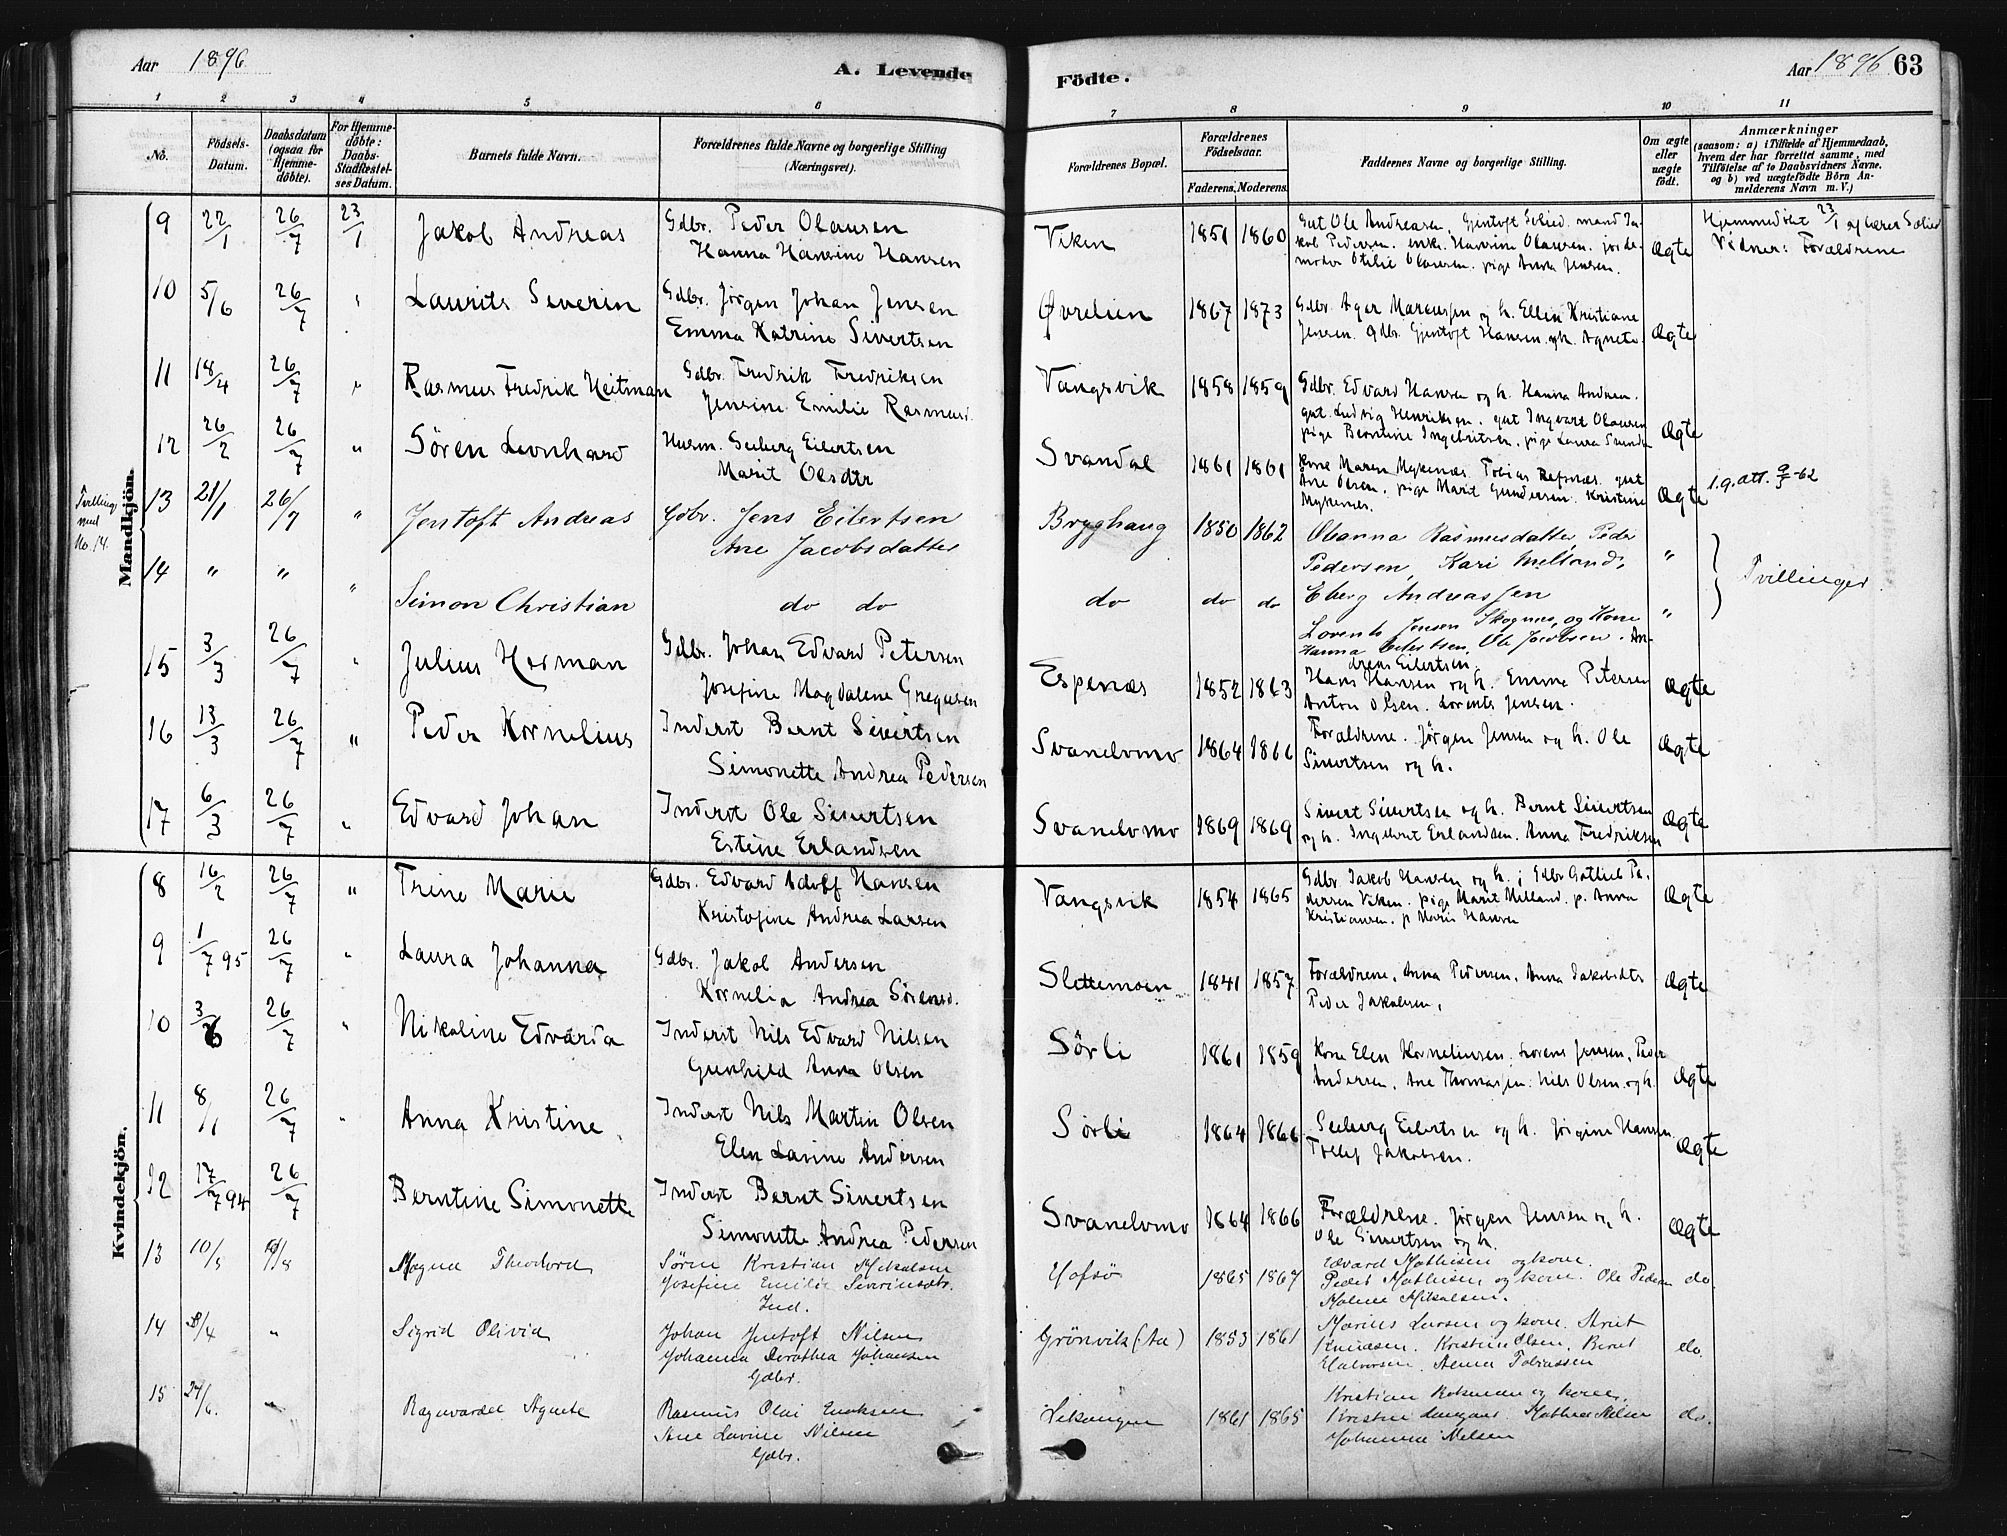 Aar 1896
A. Levende Födte.
Aar 1896 63
1 2 3 4 5 6 7 8 9 10 11
No.
Födsels-Datum.
Daabsdatum (ogsaa for Hjemme-döbte).
For Hjemme-döbte: Daabs-Stadfæstel-ses Datum.
Barnets fulde Navn.
Forældrenes fulde Navne og borgerlige Stilling (Næringsvei).
Forældrenes Bopæl.
Forældrenes Födselsaar.
Faderens. Moderens.
Faddernes Navne og borgerlige Stilling.
Om ægte eller uægte födt.
Anmærkninger
(saasom: a) i Tilfælde af Hjemmedaab, hvem der har forrettet samme, med Tilföielse af to Daabsvidners Navne. og b) ved uægtefödte Börn An-melderens Navn m. V.)
Mandkjön.
9 22/1 26/7 23/1 Jakob Andreas Gdbr. Peder Olausen
Hanna Hansine Hansen
Viken 1851 1860 Gut Ole Andreasen, Gjentoft Solied. mand Ja-
kob Pedersen. enke Hansine Olausen. jorde-
moder Otilie Olausen. pige Anna Jensen. Ægte
Hjemmedöbt 23/1 af lærer Solied
Vidner: Forældrene
10 5/6 26/7 " Laurits Severin Gdbr. Jörgen Johan Jensen
Emma Katrine Sivertsen
Øvrelien 1867 1873 Gdbr. Agar Marcussen og h. Ellen Kristiane
Jensen. gdbr. Gjentoft Hansen og h. Agnete. Ægte
11 18/4 26/7 " Rasmus Fredrik Heitman Gdbr. Fredrik Fredriksen
Jensine Emilie Rasmusd.
Vangsvik 1858 1859 Gdbr. Edvard Hansen og h. Hanna Andrea.
gut Ludvig Henriksen. gut Ingvart Olausen
pige Berntine Ingebritsen, pige Laura Ægte
12 26/2 26/7 " Sören Leonhard Husm. Seeberg Eilertsen
Marit Olsdtr
Svandal 1861 1861 Kone Maren Mykenæs Tobias Refsnæs. gut
Arne Olsen. pige Marit Gundersen. Kristine
Mykenæs. Ægte
i.g. att. 9/5-62
Tvilling
med
No. 14.
13 21/1 26/7 " Jentoft Andreas Gdbr. Jens Eilertsen
Ane Jacobsdatter
Brygghaug 1850 1862 Olianna Rasmusdatter, Peder
Pedersen, Kari Melland, "
Tvillinger
14 " " " Simon Christian do do
do do do Eberg Andreassen
Lorents Jensen Skognes, og Kone
Hanna Eilertsen. Ole Jacobsen. An-
dreas Eilertsen. "
15 3/3 26/7 " Julius Herman Gdbr. Johan Edvard Petersen
Josefine Magdalene Gregusen
Espenæs 1852 1863 Hans Hansen og h. Emma Petersen
Anton Olsen. Lorents Jensen. Ægte
16 13/3 26/7 " Peder Kornelius Inderst Bernt Sivertsen
Simonette Andrea Pedersen
Svanelvmo 1864 1866 Forældrene. Jörgen Jensen og h. Ole
Sivertsen og h. Ægte
17 6/3 26/7 " Edvard Johan Inderst Ole Sivertsen
Estine Erlandsen
Svanelvmo 1869 1869 Sivert Sivertsen og h. Bernt Sivertsen
og h. Ingebrit Erlandsen. Anna Fredriksen Ægte
Kvindekjön.
8 16/2 26/7 " Trine Marie Gdbr. Edvard Adolf Hansen
Kristofine Andrea Larsen
Vangsvik 1854 1865 Gdbr. Jakob Hansen og h.; Gdbr Gotlieb Pe-
dersen Viken. pige Marit Melland. p. Anna
Kristiansen. p Marie Hansen Ægte
9 1/7 95 26/7 " Laura Johanna Gdbr. Jakob Andersen
Kornelia Andrea Sörensd.
Slettemoen 1841 1857 Forældrene, Anna Pedersen, Anna Jakobsdtr
Peder Jakobsen. Ægte
10 3/6 26/7 " Nikoline Edvarda Inderst Nils Edvard Nilsen
Gunhild Anna Olsen
Sörli 1861 1859 Kone Elen Korneliusen. Lorens Jensen, Peder
Andersen, Ane Thomassen. Nils Olsen og h. Ægte
11 8/1 26/7 " Anna Kristine Inderst Nils Martin Olsen
Elen Lavine Andersen
Sörli 1864 1866 Seeberg Eilertsen og h. Jörgine Hansen.
Tollef Jakobsen. Ægte
12 17/7 94 26/7 Berntine Simonette Inderst Bernt Sivertsen
Simonette Andrea Pedersen
Svanelvmo 1864 1866 Forældrene. Jörgen Jensen og h.
Ole Sivertsen og h. Ægte
13 10/5 /8 Magna Theodora Sören Kristian Mikalsen
Josefine Emilie Severinsdtr.
Ind.
Hofsö 1865 1867 Edvard Mathisen og kone.
Peder Mathisen og kone. Ole Pedersen
Malene Mikalsen. do
14 /4 " Sigrid Olivia Johan Jentoft Nilsen
Johanna Dorothea Johansen
Gdbr.
Grönvik (Aa) 1853 1861 Marius Larsen og kone. Marit
Knudsen. Kristine Olsen, Berit
Halvorsen, Anna Tobiassen do.
15 24/6. " Ragnvardа Agnete Rasmus Olai Enoksen
Ane Lovise Nilsen
Gdbr.
1861 1865 Kristian og kone.
Kristine Mathea Nilsen
Johanna Nilsen do.